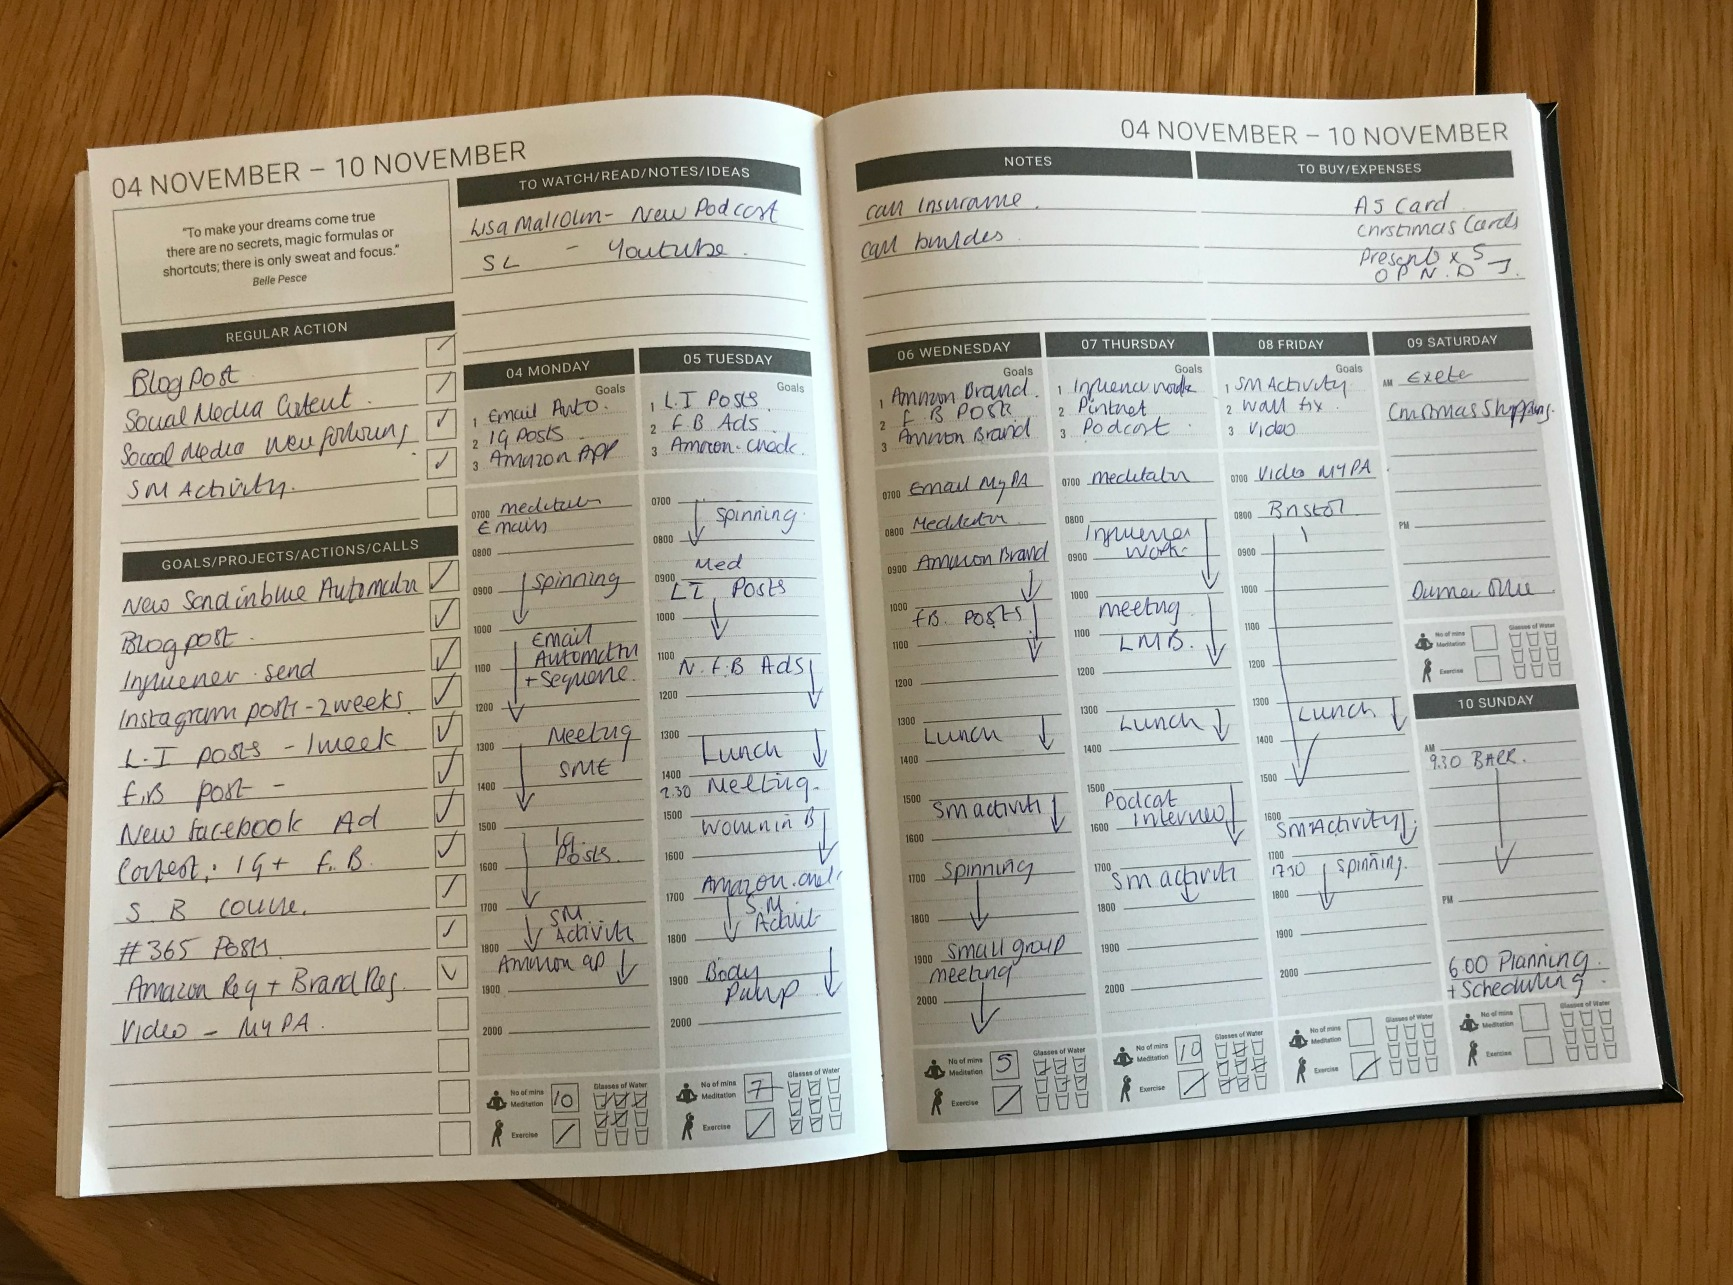 04 NOVEMBER – 10 NOVEMBER
"To make your dreams come true
there are no secrets, magic formulas or
shortcuts; there is only sweat and focus."
Belle Pesce
TO WATCH/READ/NOTES/IDEAS
Lisa Malcolm - New Podcast
SL - Youtube
REGULAR ACTION
Blog Post
Social Media Content.
Social Media new following
SM Activity.
GOALS/PROJECTS/ACTIONS/CALLS
New Sendinblue Automatn
Blog post.
Influencer send
Instagram posts - 2 weeks
L.I posts - 1 week
F.B post -
New Facebook Ad
Contest: IG + F.B.
S B course.
#365 Posts
Amazon Reg + Brand Reg.
Video - My PA.
04 MONDAY
Goals
1 Email Auto.
2 IG Posts
3 Amazon App
0700 meditatn
Emails
0800
0900 Spinning
1000
Email
1100 Automatn
+ Sequence.
1200
1300 Meeting
SME
1400
1500
IG
1600 Posts.
1700
SM
Activity
1800
Amazon ap
1900
2000
No of mins
Meditation 10
Glasses of Water
Exercise
05 TUESDAY
Goals
1 L.I Posts
2 F B Ads
3 Amazon - check.
0700
Spinning.
0800
Med
0900
LI Posts
1000
1100
N.F.B Ads
1200
1300
Lunch
1400
2.30 Meeting.
1500
Women in B
1600
1700 Amazon.
S.M.
Activit
1800
1900 Body
Pump
2000
No of mins
Meditation 7
Glasses of Water
Exercise
04 NOVEMBER – 10 NOVEMBER
NOTES
call Insurance.
call builders
TO BUY/EXPENSES
A5 Card
Christmas Cards
Presents x 5
O P N. D J.
06 WEDNESDAY
Goals
1 Amazon Brand.
2 F.B Posts
3 Amazon Brand
0700 Email My PA
0800 Meditatn
0900 Amazon Brand
1000
F.B. Posts
1100
1200
1300
Lunch
1400
1500 SM activiti
1600
1700 Spinning
1800
1900 Small group
meeting
2000
No of mins
Meditation 5
Glasses of Water
Exercise
07 THURSDAY
Goals
1 Influencer
2 Pintret
3 Podcast
0700 meditatn
0800
Influencer
0900 Work.
1000
meeting
1100 LMB.
1200
1300 Lunch
1400
1500
Podcast
1600 Interview
1700
SM activiti
1800
1900
2000
No of mins
Meditation 10
Glasses of Water
Exercise
08 FRIDAY
Goals
1 SM Activity
2 Wall fix.
3 Video
0700 Video MYPA
0800 Bristol
0900
1000
1100
1200
1300 Lunch
1400
1500
1600
SM Activity
1700
1730 Spinning.
1800
1900
2000
No of mins
Meditation
Glasses of Water
Exercise
09 SATURDAY
AM Exeter
Christmas Shopping.
PM
No of mins
Meditation
Glasses of Water
Exercise
10 SUNDAY
AM
9.30 BARR.
PM
6.00 Planning
+ Scheduling
No of mins
Meditation
Glasses of Water
Exercise